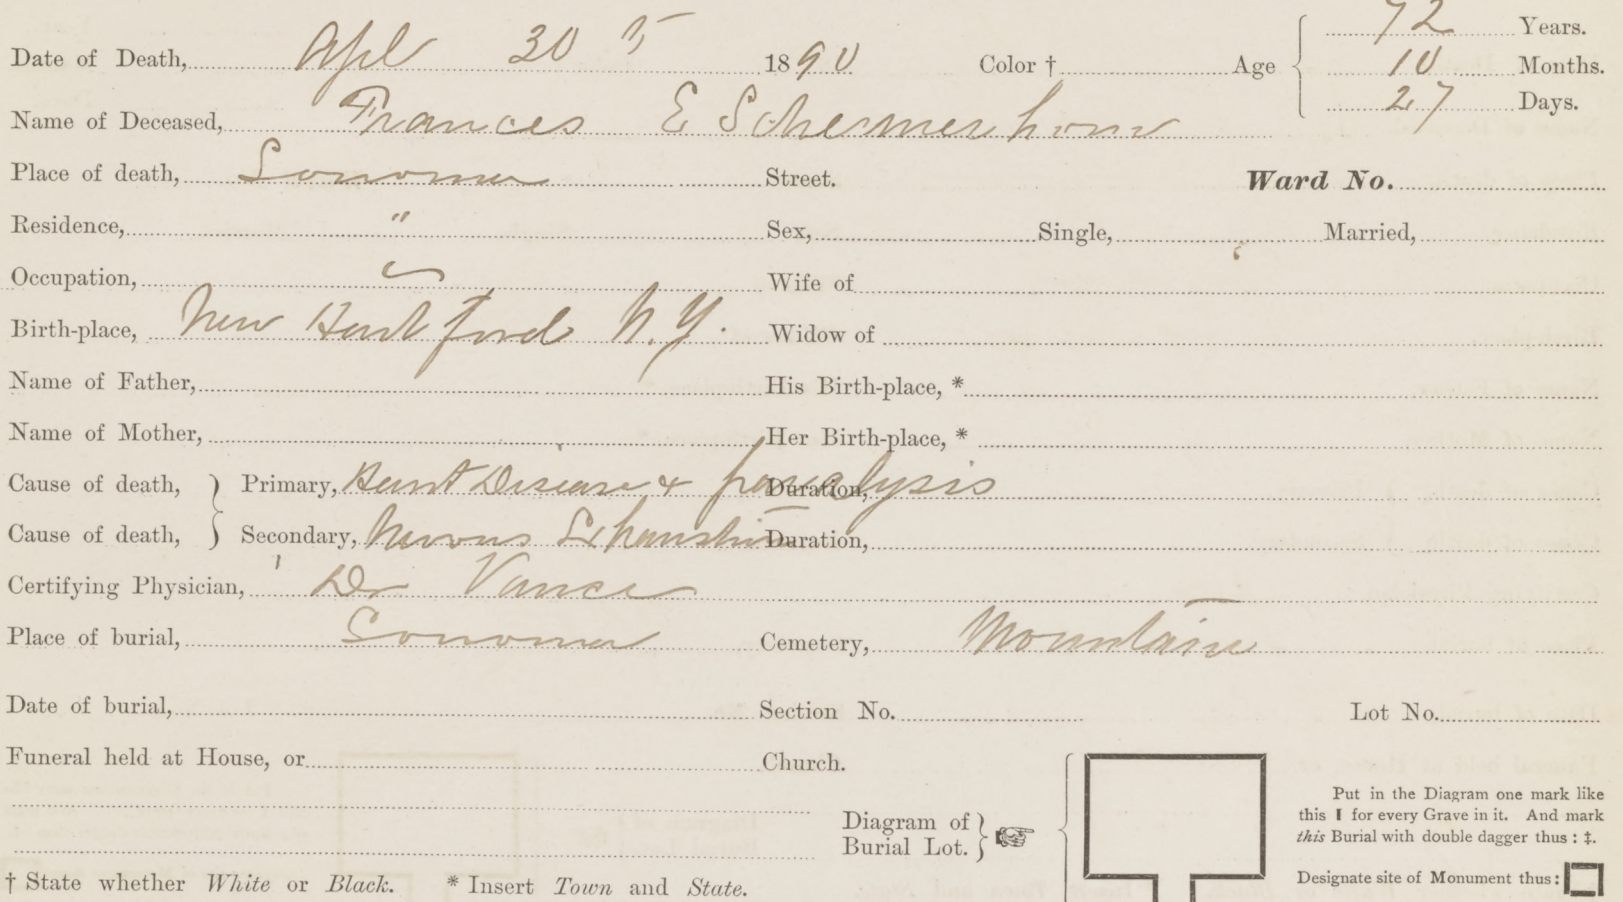 72 Years.
Date of Death, Apl 30 th 1890 Color † Age 10 Months.
27 Days.
Name of Deceased, Frances E Schermerhorn
Place of death, Sonoma Street. Ward No.
Residence, " Sex, Single, Married,
Occupation, Wife of
Birth-place, New Hartford N.Y. Widow of
Name of Father, His Birth-place, *
Name of Mother, Her Birth-place, *
Cause of death, Primary, Heart Disease & paralysis Duration,
Cause of death, Secondary, Nervous Exhaustion Duration,
Certifying Physician, Dr Vance
Place of burial, Sonoma Cemetery, Mountain
Date of burial, Section No. Lot No.
Funeral held at House, or Church.
Put in the Diagram one mark like
this I for every Grave in it. And mark
this Burial with double dagger thus : ‡.
Diagram of
Burial Lot.
Designate site of Monument thus:
† State whether White or Black. * Insert Town and State.